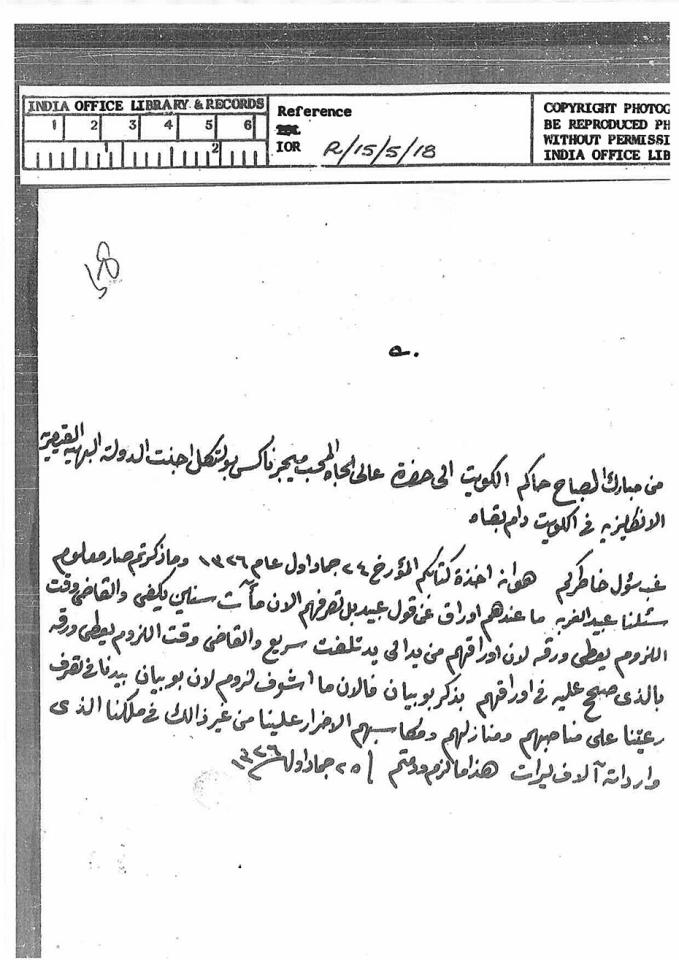 INDIA OFFICE LIBRARY & RECORDS
1 2 3 4 5 6
1 2
Reference
IOR R/15/5/18
COPYRIGHT PHOTOG
BE REPRODUCED PH
WITHOUT PERMISSI
INDIA OFFICE LIB
من مبارك الصباح حاكم الكويت الى حضرة عالي الجاه المحب ميجر ناكس بولتكل اجنت الدولة البهيه القيصريه
الانقليزيه في الكويت دام بقاه
غب سؤل خاطركم هوانه اخذة كتابكم المؤرخ ٢٤ جماد اول عام ١٣٢٦ وما ذكرتم صار معلوم
سئلنا عبيد القريه ما عندهم اوراق عن قول عبيد بل تصرفهم الان مآت سنين يكفي والقاضي وقت
اللزوم يعطي ورقه لان اوراقهم من يد الى يد تلفت سريع والقاضي وقت اللزوم يعطي ورقه
بالذى صح عليه في اوراقهم بذكر بوبيان فالان ما اشوف لزوم لان بوبيان بيدنا في تصرف
رعيتنا على مناصبهم ومنازلهم ومكاسبهم الاضرار علينا من غير ذالك في ملكنا الذى
وارداته آلاف ليرات هذا ما لزم ودمتم ٢٥ جماد اول ١٣٢٦